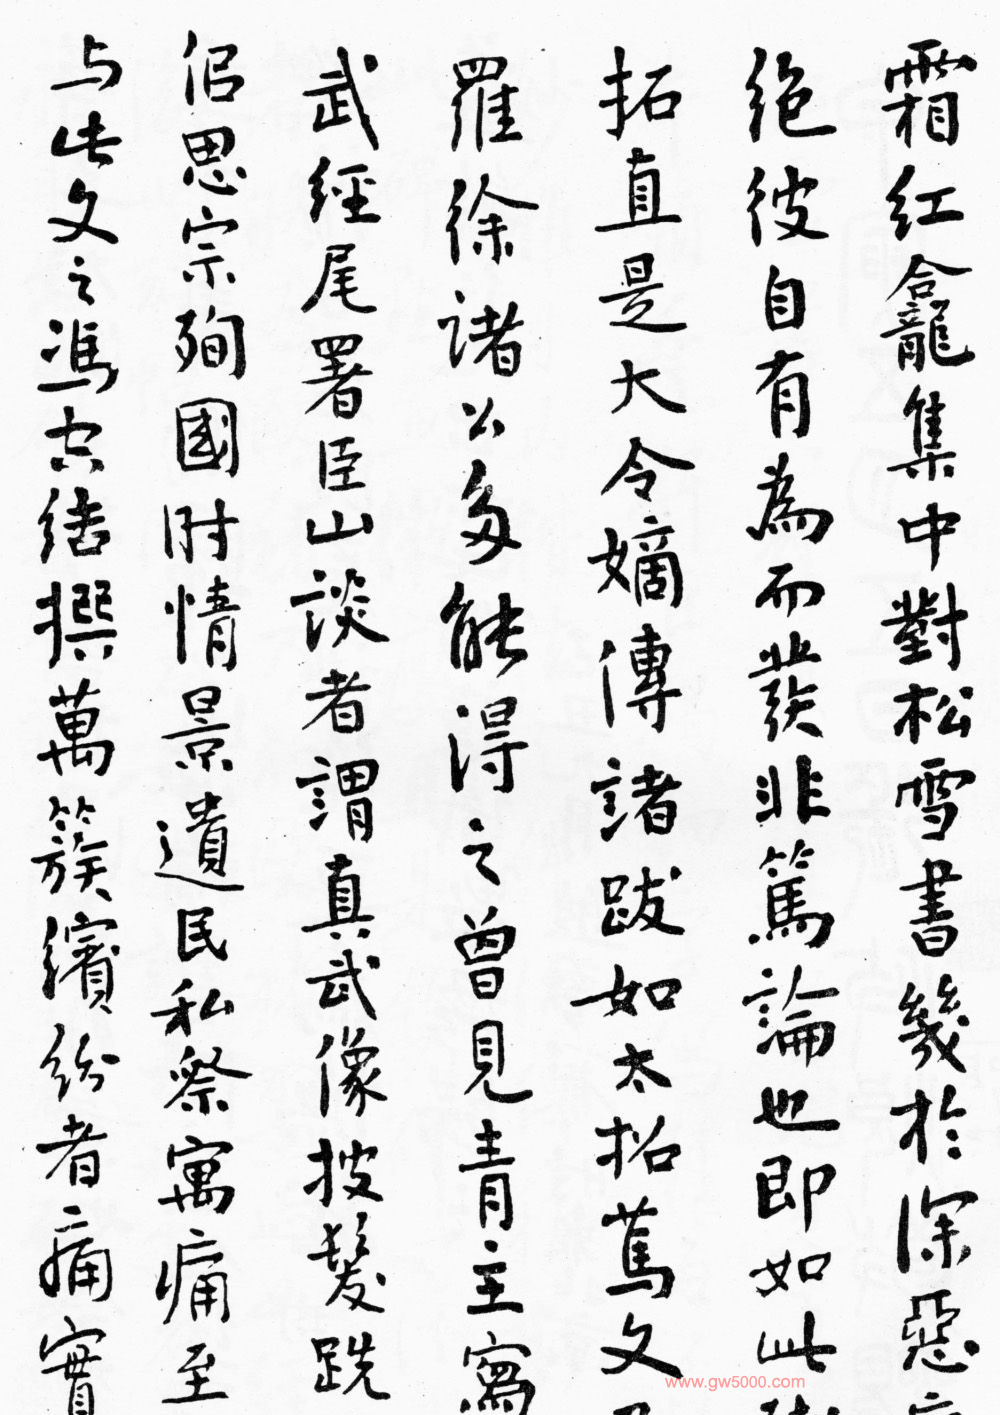 霜紅龕集中對松雪書幾於深惡
絶彼自有為而發非篤論也即如此
拓直是大令嫡傳諸跋如太拓蔦文
羅徐諸公多能得之曾見青主寫
武經尾署臣山談者謂真武像披髮跣
侣思宗殉國時情景遺民私祭寓痛至
与此文之馮空結撰萬簇繽紛者痛實
www.gw5000.com